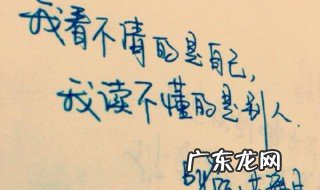 我看不清的是自己,
我读不懂的是别人.
BY
广东龙网